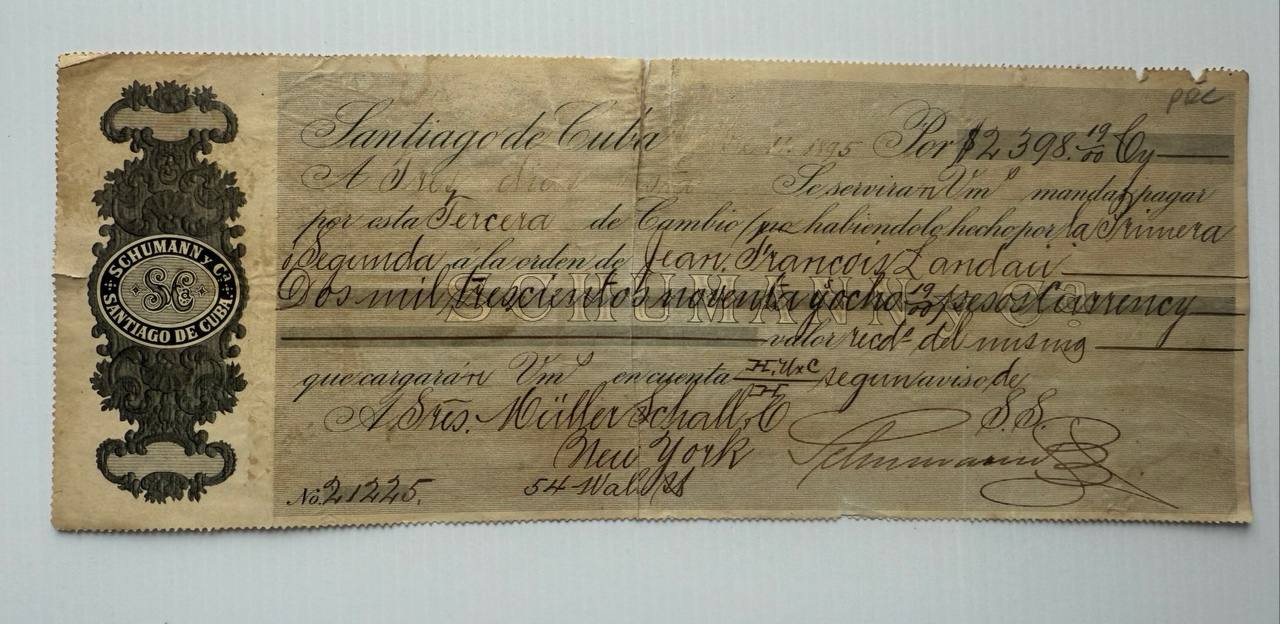 SCHUMANN Y Ca.
SC
SANTIAGO DE CUBA.
Santiago de Cuba 1895 Por $2398.19/00 Cy
A Tres dias vista Se serviran Vms mandar pagar
por esta Tercera de Cambio (no habiendolo hecho por la Primera
ó Segunda á la orden de Jean François Landau
Dos mil trescientos noventa y ocho 19/00 pesos Currency
SCHUMANN y Ca.
valor recdo del mismo
que cargarán Vms en cuenta H. U x C / H segun aviso de
A Srēs. Müller Schall & C S.S.
New York Schumann
No. 21225. 54 Wall St